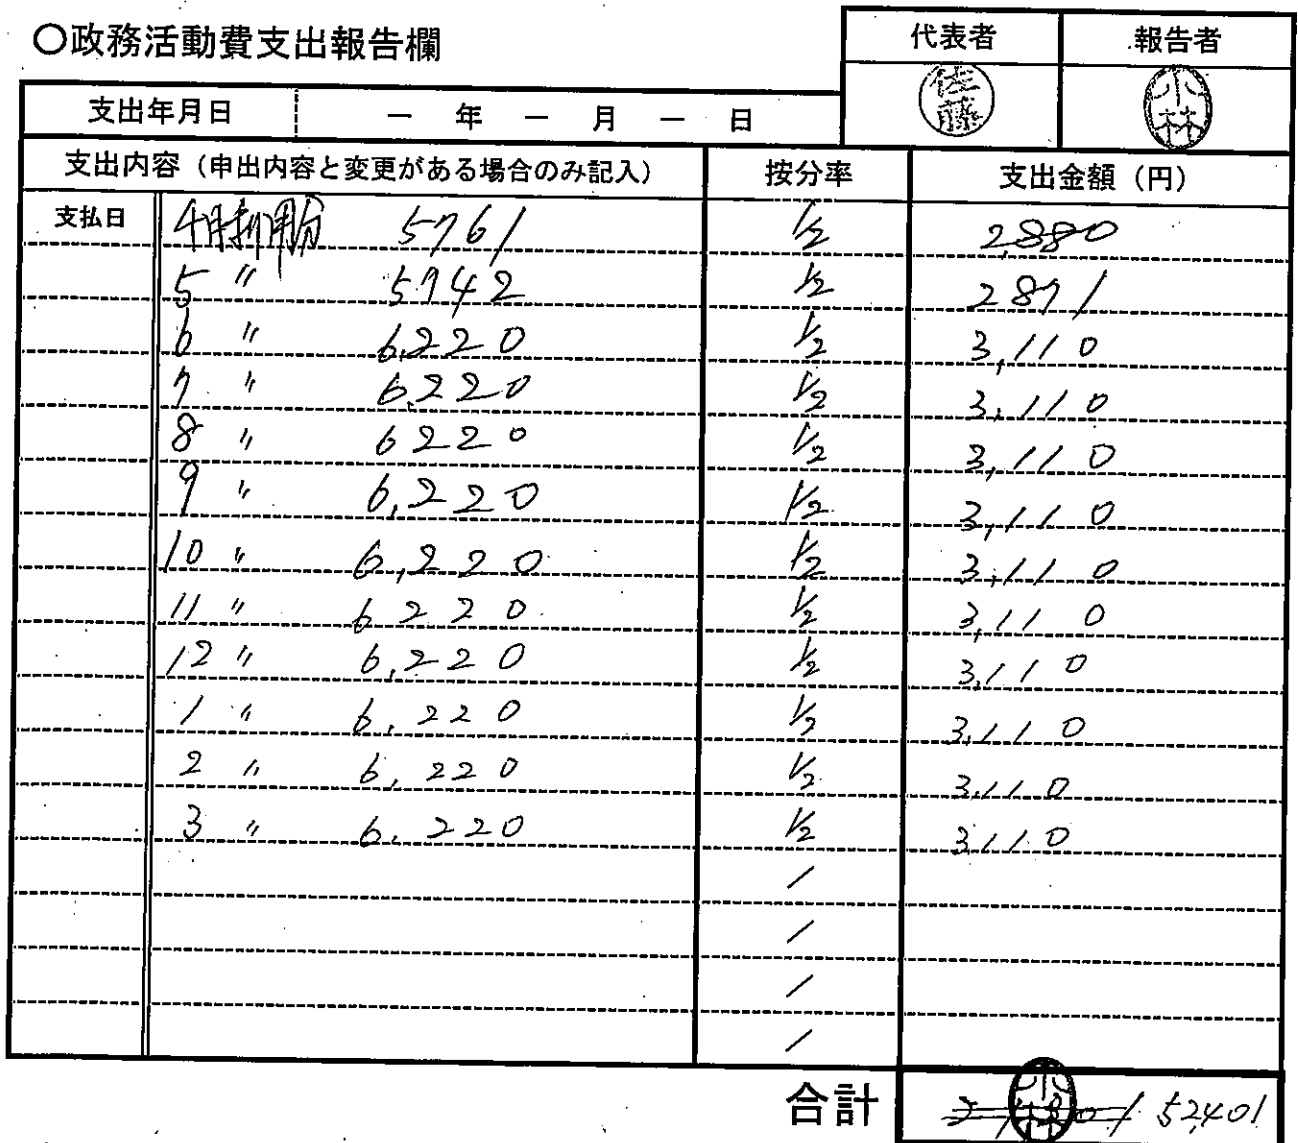 〇政務活動費支出報告欄
代表者 報告者
佐藤 小林
支出年月日 ー 年 ー 月 ー 日
支出内容（申出内容と変更がある場合のみ記入） 按分率 支出金額（円）
支払日 4月利用分 5761 1/2 2,880
5 〃 5742 1/2 2871
6 〃 6,220 1/2 3,110
7 〃 6,220 1/2 3,110
8 〃 6220 1/2 3,110
9 〃 6,220 1/2 3,110
10 〃 6,220 1/2 3,110
11 〃 6220 1/2 3,110
12 〃 6,220 1/2 3,110
1 〃 6,220 1/2 3,110
2 〃 6,220 1/2 3,110
3 〃 6,220 1/2 3,110
/
/
/
/
合計 小林 52,401